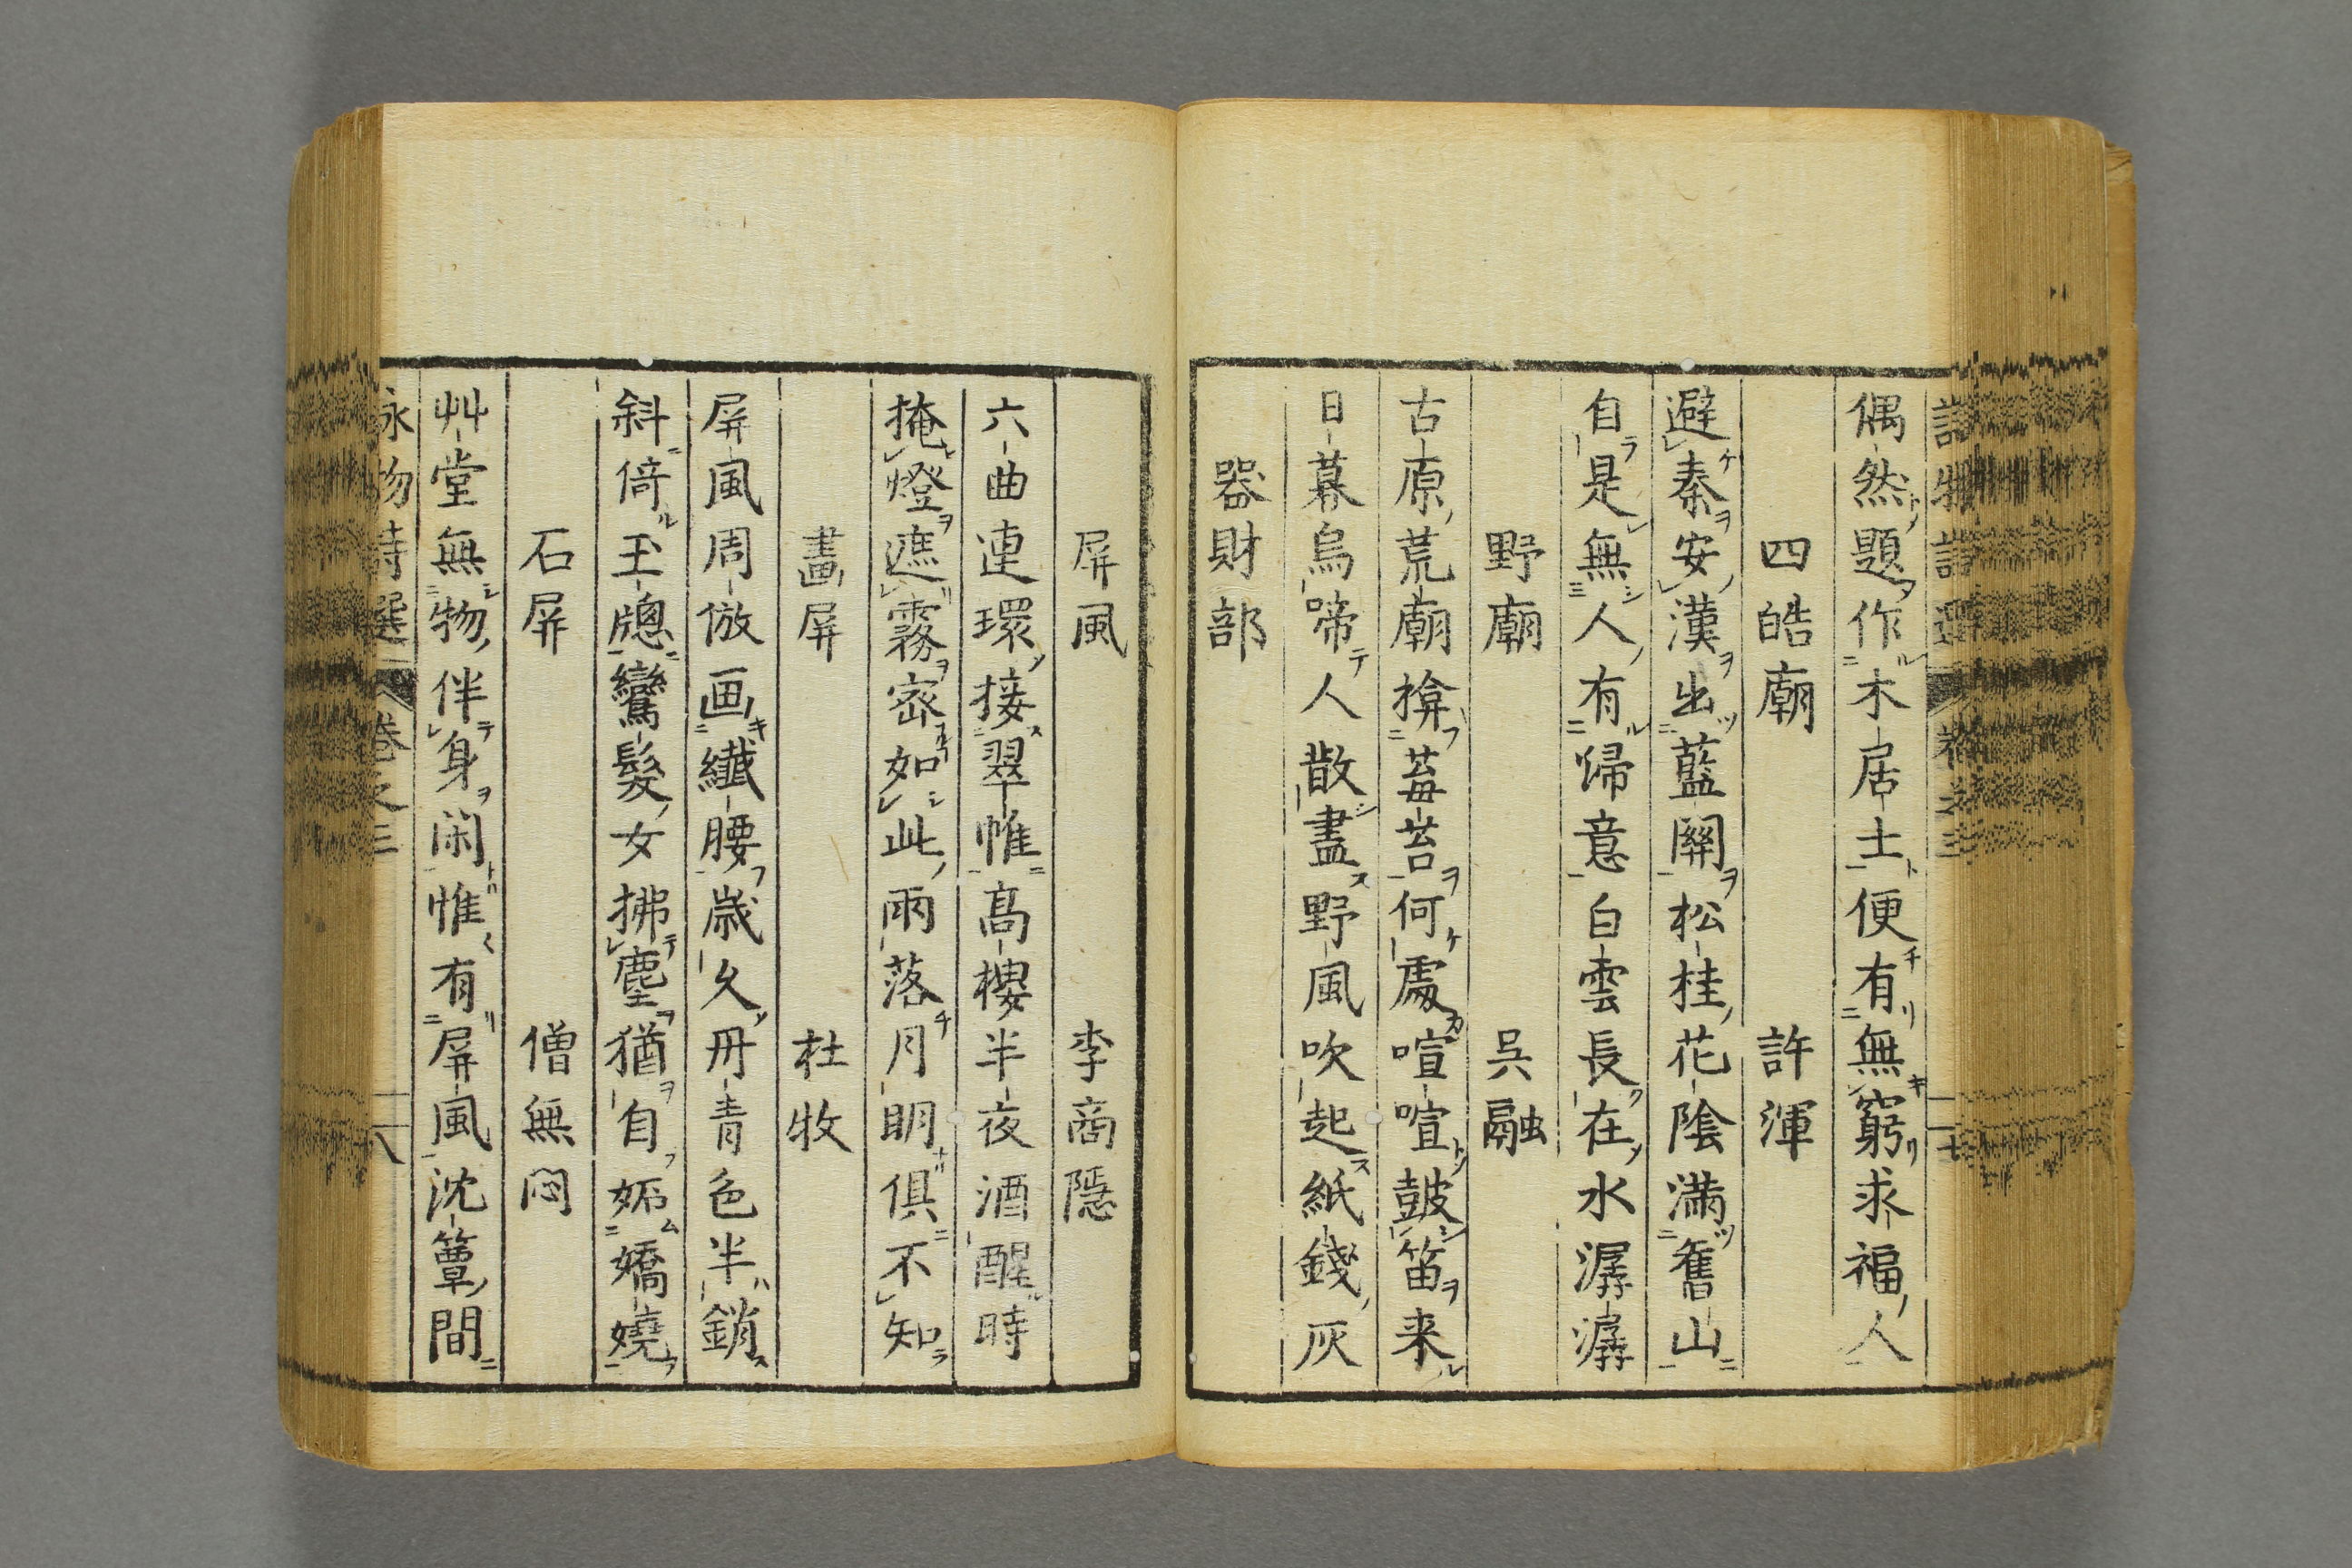 偶然題作木居士便有無窮求福人
四皓廟 許渾
避秦安漢出藍關松桂花陰滿舊山
自是無人有歸意白雲長在水潺潺
野廟 吳融
古原荒廟揜莓苔何處喧喧鼓笛来
日暮烏啼人散盡野風吹起紙錢灰
器財部
屏風 李商隱
六曲連環接翠帷高樓半夜酒醒時
掩燈遮霧密如此雨落月明俱不知
畫屏 杜牧
屏風周倣画纖腰歲久丹青色半銷
斜倚玉牕鸞髮女拂塵猶自妬嬌嬈
石屏 僧無悶
艸堂無物伴身闲惟有屏風沈簟間
詠物詩選 卷之三 十八